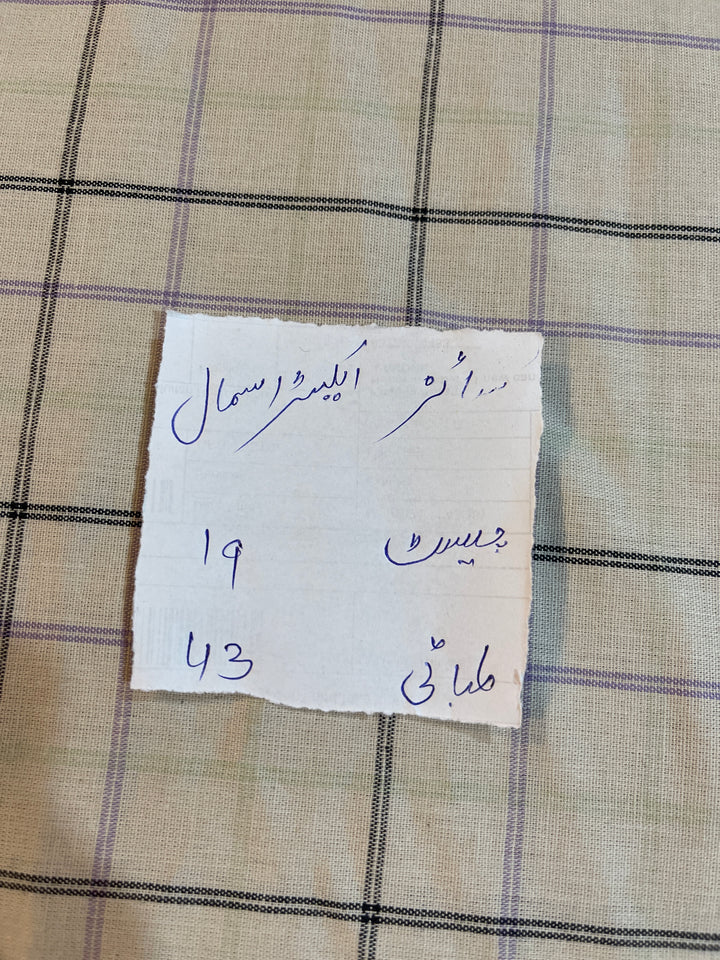 سائز ایکسٹرا سمال
چیسٹ 19
لمبائی 43